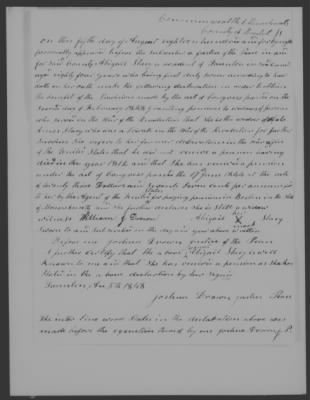 Commonwealth of Massachusetts
County of Bristol SS
On this fifth day of August eighteen hundred and forty eight
personally appeared before the subscriber a Justice of the Peace in and
for said County Abigail Macy a resident of Taunton in said County
aged eighty four years who being first duly sworn according to law
doth on her oath make the following declaration in order to obtain
the benefit of the provisions made by the act of Congress passed on the
second day of February 1848 granting pensions to widows of persons
who served in the War of the Revolution That she is the widow of
who was a in the War of the Revolution for further
services she refers to her former declaration in the
of the United States that he did not receive a pension having
died in the year 1812 and that she has received a pension
under the act of Congress passed the 17 June 1844 at the rate
of Seventy three Dollars and Seventy Seven cents per annum
by the Agent of the United States for paying pensions in Boston in the State
of Massachusetts and she further declares she is still a widow
witness William Abigail her X mark Macy
Sworn to and subscribed on the day and year above written
Before me Joshua Drown Justice of the Peace
I further certify that the above Abigail Macy is well
known to me and that she has received a pension as she has
stated in the above declaration by her signed
Taunton Aug 5th 1848
Joshua Drown Justice Peace
The inter line word States in the declaration above was
made before the execution thereof by me Joshua Drown J. P.